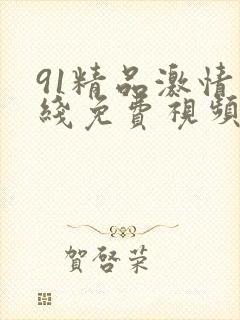 91精品激情
綫免費視頻
賀啓荣